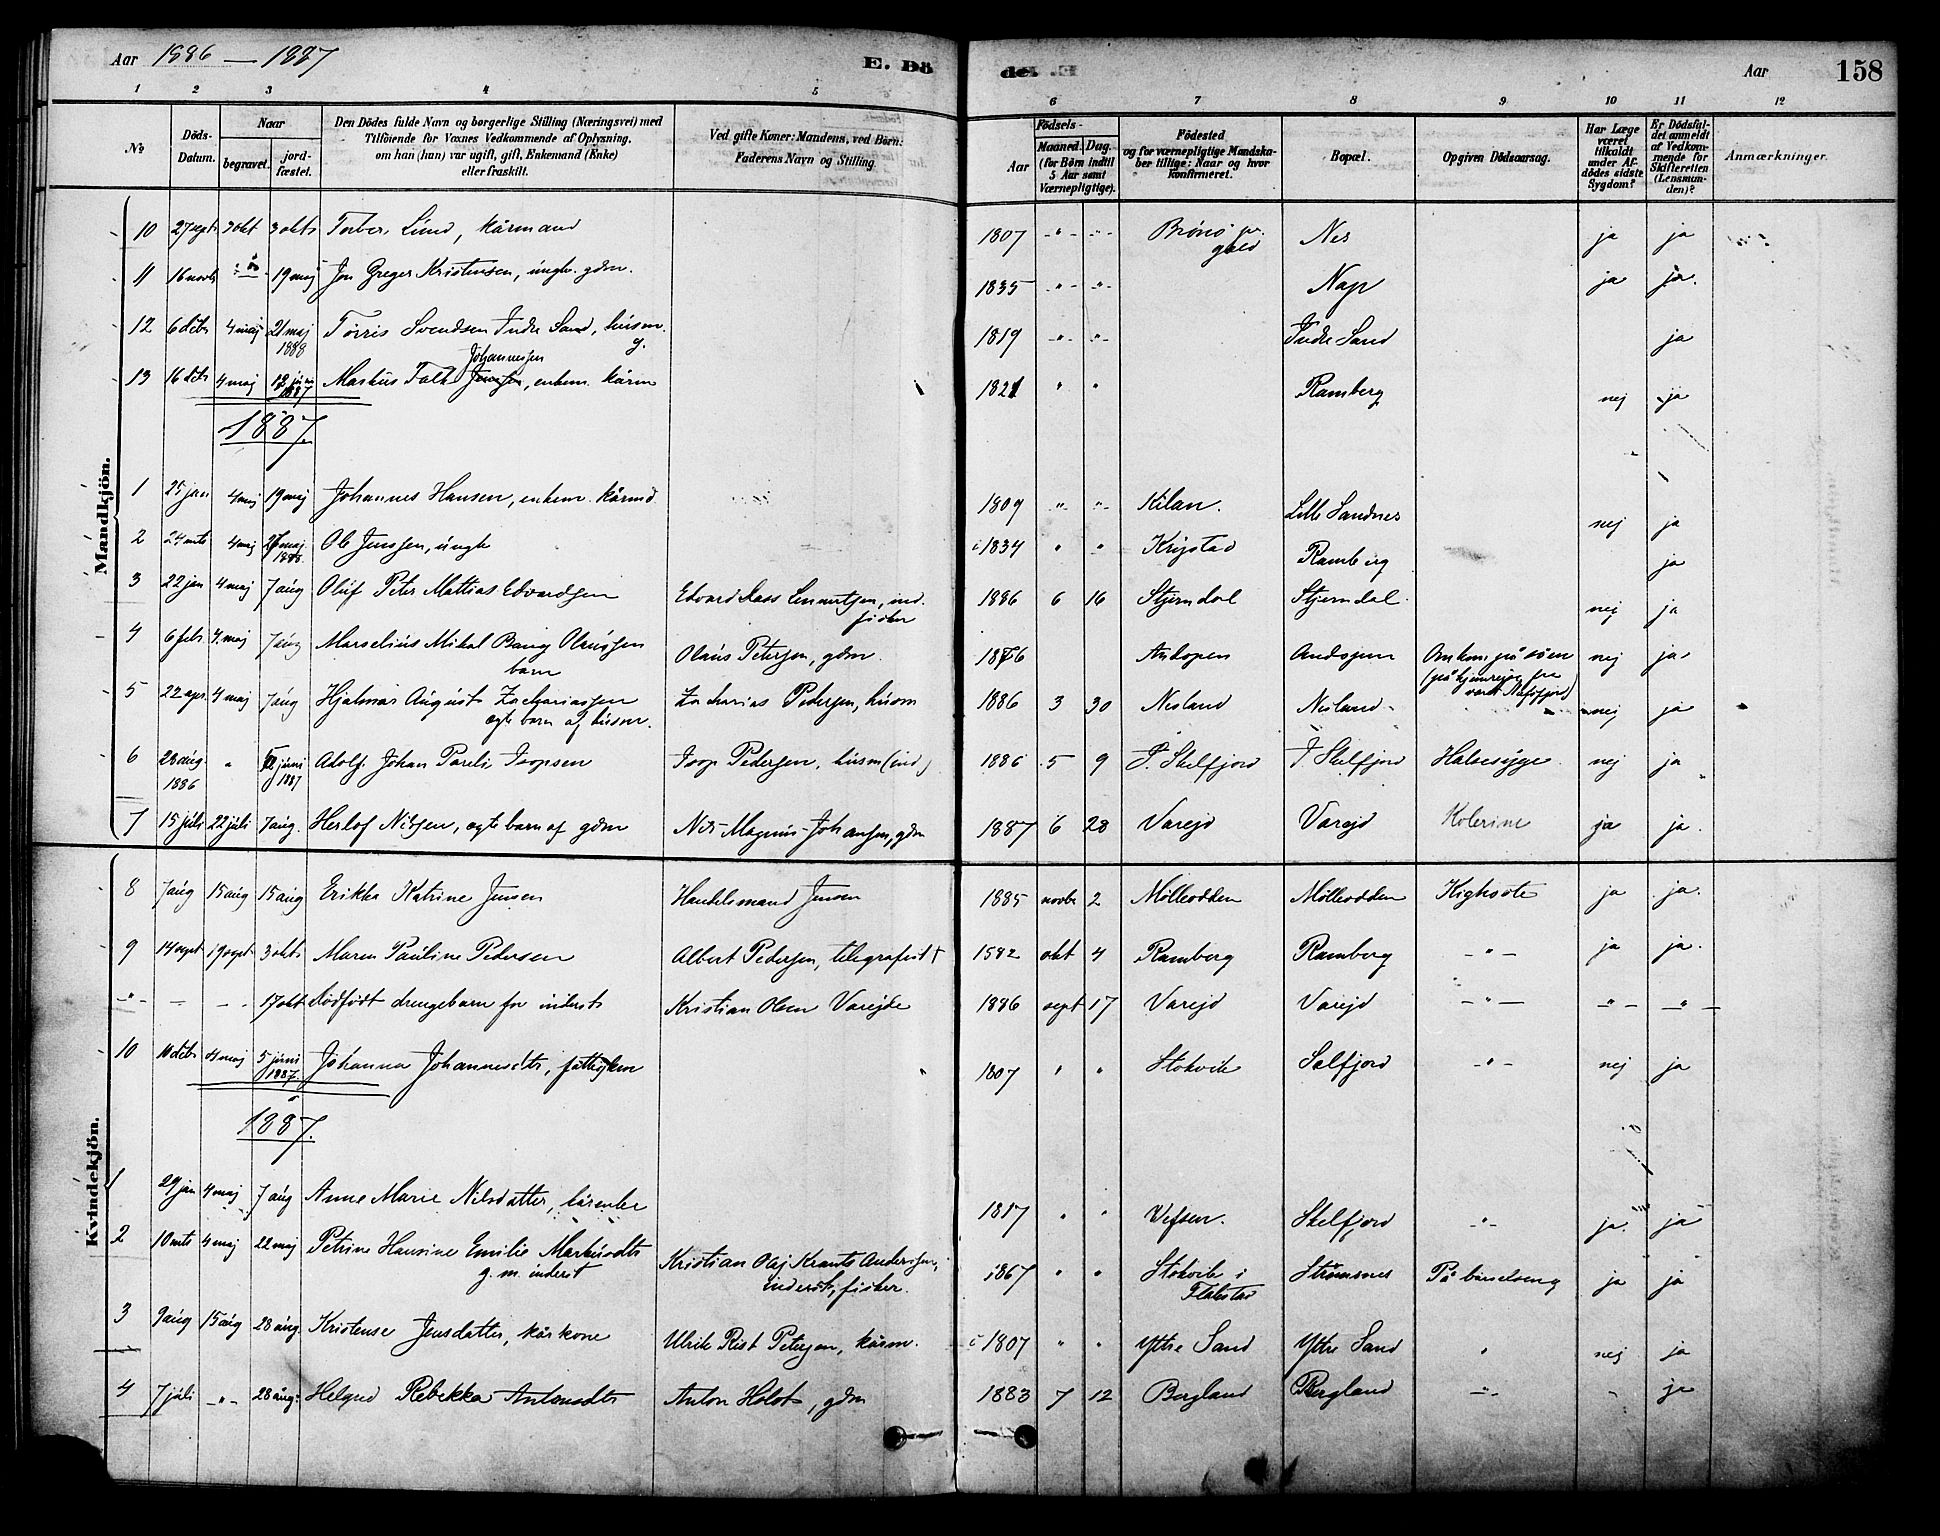 Aar 1886 — 1887 E. Dö
de. Aar 158
1 2 3 4 5 6 7 8 9 10 11 12
No
Döds-Datum.
Naar
begravet.
jord-fæstet.
Den Dödes fulde Navn og borgerlige Stilling (Næringsvei) med
Tilföiende for Voxnes Vedkommende af Oplysning,
om han (hun) var ugift, gift, Enkemand (Enke)
eller fraskilt.
Ved gifte Koner: Mandens, ved Børn:
Faderens Navn og Stilling.
Födsels-
Aar
Maaned. Dag.
(for Börn indtil
5 Aar samt
Værnepligtige).
Födested
og for værnepligtige Mandska-
ber tillige: Naar og hvor
konfirmeret.
Bopæl.
Opgiven Dödsaarsag.
Har Læge
været
tilkaldt
under Af-
dödes sidste
Sygdom?
Er Dödsfal-
det anmeldt
af Vedkom-
mende for
Skifteretten
(Lensman-
den)?
Anmærkninger.
Mandkjön.
10 27 sept 3 okt 3 okt Torber Lund, kårmand 1807 - " - - " - Brönö pr. gjeld Nes ja ja
11 16 novb 19 maj Jon Greger Kristensen, ungk. gdm. 1835 - " - - " - Nap ja ja.
12 6 decbr 4 maj 21 maj 1888 Törris Svendsen Indre Sand, husm. g. 1819 - " - - " - Indre Sand ja
13 16 decbr 4 maj 12 juni 1887 Markus Falk Johannessen, enkem. kårm 1821 " " Ramberg nej ja
1887.
1 25 jan 4 maj 19 maj Johannes Hansen, enkem. kårmd 1809 - " - - " - Kilan. Lille Sandnes nej ja
2 24 mts 4 maj 26 maj 1888. Ole Jenssen, ungk 1834 " " Krystad Ramberg ja
3 22 jan 4 maj 7 aug Oluf Peter Mattias Edvardsen Edvard Laos Lennertsen, ind. fisker 1886 6 16 Stjerndal Stjerndal. nej ja
4 6 febr 4. maj 7 aug Marselius Mikal Bang Olaussen barn Olaus Petersen, gdm. 1876 Ankopen Andopen Omkom på söen (på hjemrejse fra været Nufsfjord) nej ja
5 22 apr. 4 maj 7 aug Hjalmar August Zachariassen ægte barn af husm. Zacharias Pedersen, husm 1886 3 30 Nesland Nesland - nej ja
6 28 aug 1886 " juni 1887 Adolf Johan Pareli Joopsen Joop Pedersen, husm (ind) 1886 5 9 I. Skelfjord I. Skelfjord Halsesyge. nej ja
7 15 juli 22 juli 7 aug. Herlof Nilsen, ægte barn af gdm Nils Magnus Johansen, gdm 1887 6 28 Varejd Varejd Kolerine ja ja.
Kvindekjön.
8 7 aug 15 aug 15 aug Erikka Katrine Jensen Handelsmand Jensen 1885 novbr 2 Mölleodden Mölleodden Kighoste ja ja.
9 14 sept 19 sept 3 okt Maren Pauline Pedersen Albert Pedersen, telegrafist 1882 okt 4 Ramberg Ramberg - " - ja ja.
- " - — - - 17 okt Dödfödt drengebarn for inderst Kristian Olsen Varejde 1886 sept 17 Varejd Varejd - " - - " - - " -
10 10 decbr 4 maj 5 juni 1887. Johanna Johannesdtr, fattigkm 1807 " " Stokvik Selfjord - " - nej ja
1887.
1 29 jan 4 maj 7 aug Anne Marie Nilsdatter, kårenke 1817 " " Vefsen. Skelfjord - " - ja. ja
2 10 mts 4 maj 22 maj Petrine Hansine Emilie Markusdtr g. m. inderst Kristian Olaj Krants Anderssen, inderst, fisker. 1867 " " Stokvik i Flakstad Strömsnes På barselseng ja ja
3 9 aug 15 aug 28 aug. Kristense Jensdatter, kårkone Ulrik Rist Petersen, kårm. 1807 " " Yttre Sand Yttre Sand " nej ja
4 7 juli - " - 28 aug. Helgred Rebekka Antonsdtr Anton Holst, gdm 1883 7 12 Bergland Bergland - " - - ja